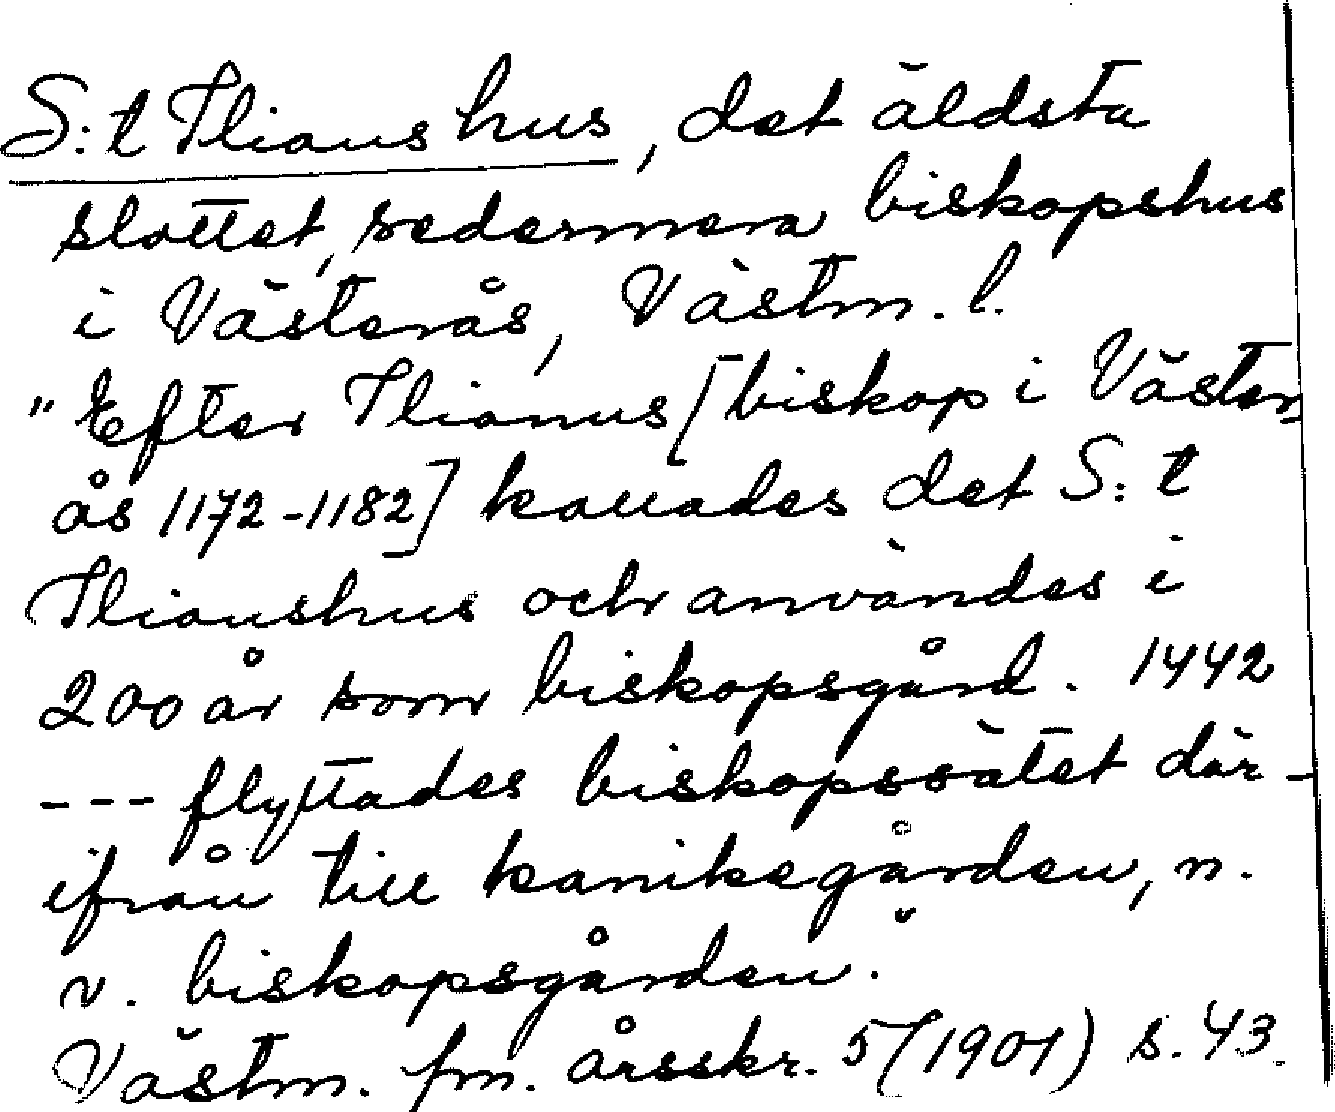 S:t Ilians hus, det äldsta
slottet, sedermera biskopshus
i Västerås, Västm. l.
"Efter Ilianus [biskop i Väster-
ås 1172-1182] kallades det S:t
Ilianshus och användes i
200 år som biskopsgård. 1442
--- flyttades biskopssätet där-
ifrån till kanikegården, n.
v. biskopsgården."
Västm. fm. årsskr. 5 (1901) s. 43